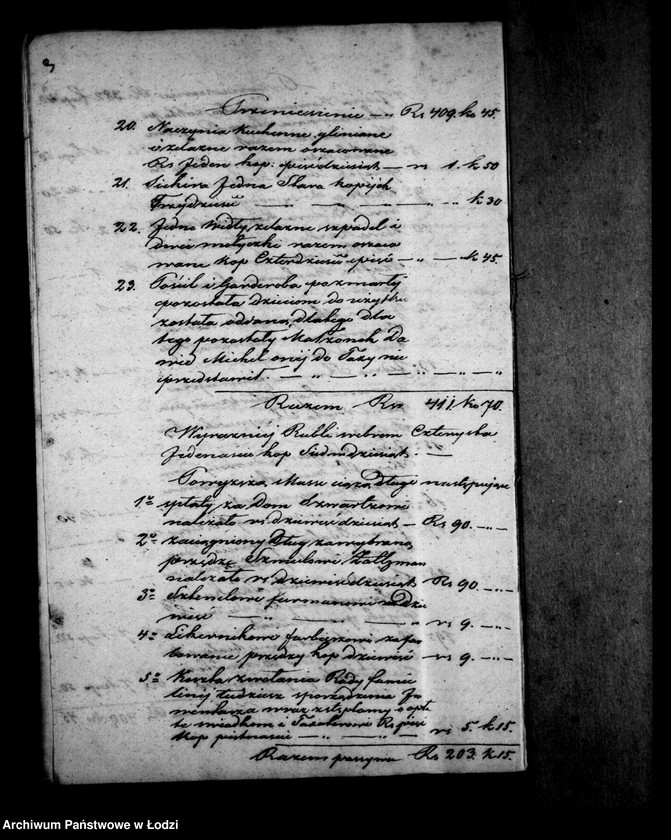 Przeniesienie — " Rs 409. ko 45.
20. Naczynia kuchenne, gliniane
i żelazne razem oszacowane
Rs Jeden kop: pięćdziesiąt — rs 1. k 50
21. Sickira Jedna Stara kopijek
Trzydzieści — " — " — " — " k 30
22. Jedne Widły żelazne szpadel i
dwie motyczki razem oszaco
wane kop Czterdzieści pięć — " — k 45.
23. Pościel i Garderoba po zmarły
pozostała dzieciom do użytku
została oddana, dlatego dla
tego pozostały Małżonek Da
wid Michel onej do Taxy nie
przedstawił. — " — " — " — " —
Razem Rs 411. ko 70.
Wyraźniej Rubli srebrem Czterysta
Jedenaście kop Siedmdziesiąt. —
Powyższą Massę ciążą Długi następujące
1o spłaty za Dom
należało rs dziewięćdziesiąt — Rs 90. — " —
2o zaciągniony Dług za wybraną
przędzę Szmulowi
należało rs dziewięćdziesiąt Rs 90 — " —
3o furmanowi rs Dzie
więć — " — " — rs 9. — " —
4o farbiarzowi za far
bowanie przędzy kop dziewięć — rs 9. — " —
5o Koszta zwołania Rady fami
lijnej tudzież sporządzenia In
wentarza wraz z stęplamy i opła
tę świadkom i Taxatorowi Rs pięć
kop piętnaście — " — " — rs 5. k 15.
Razem passywa Rs 203. k 15.
Archiwum Państwowe w Łodzi